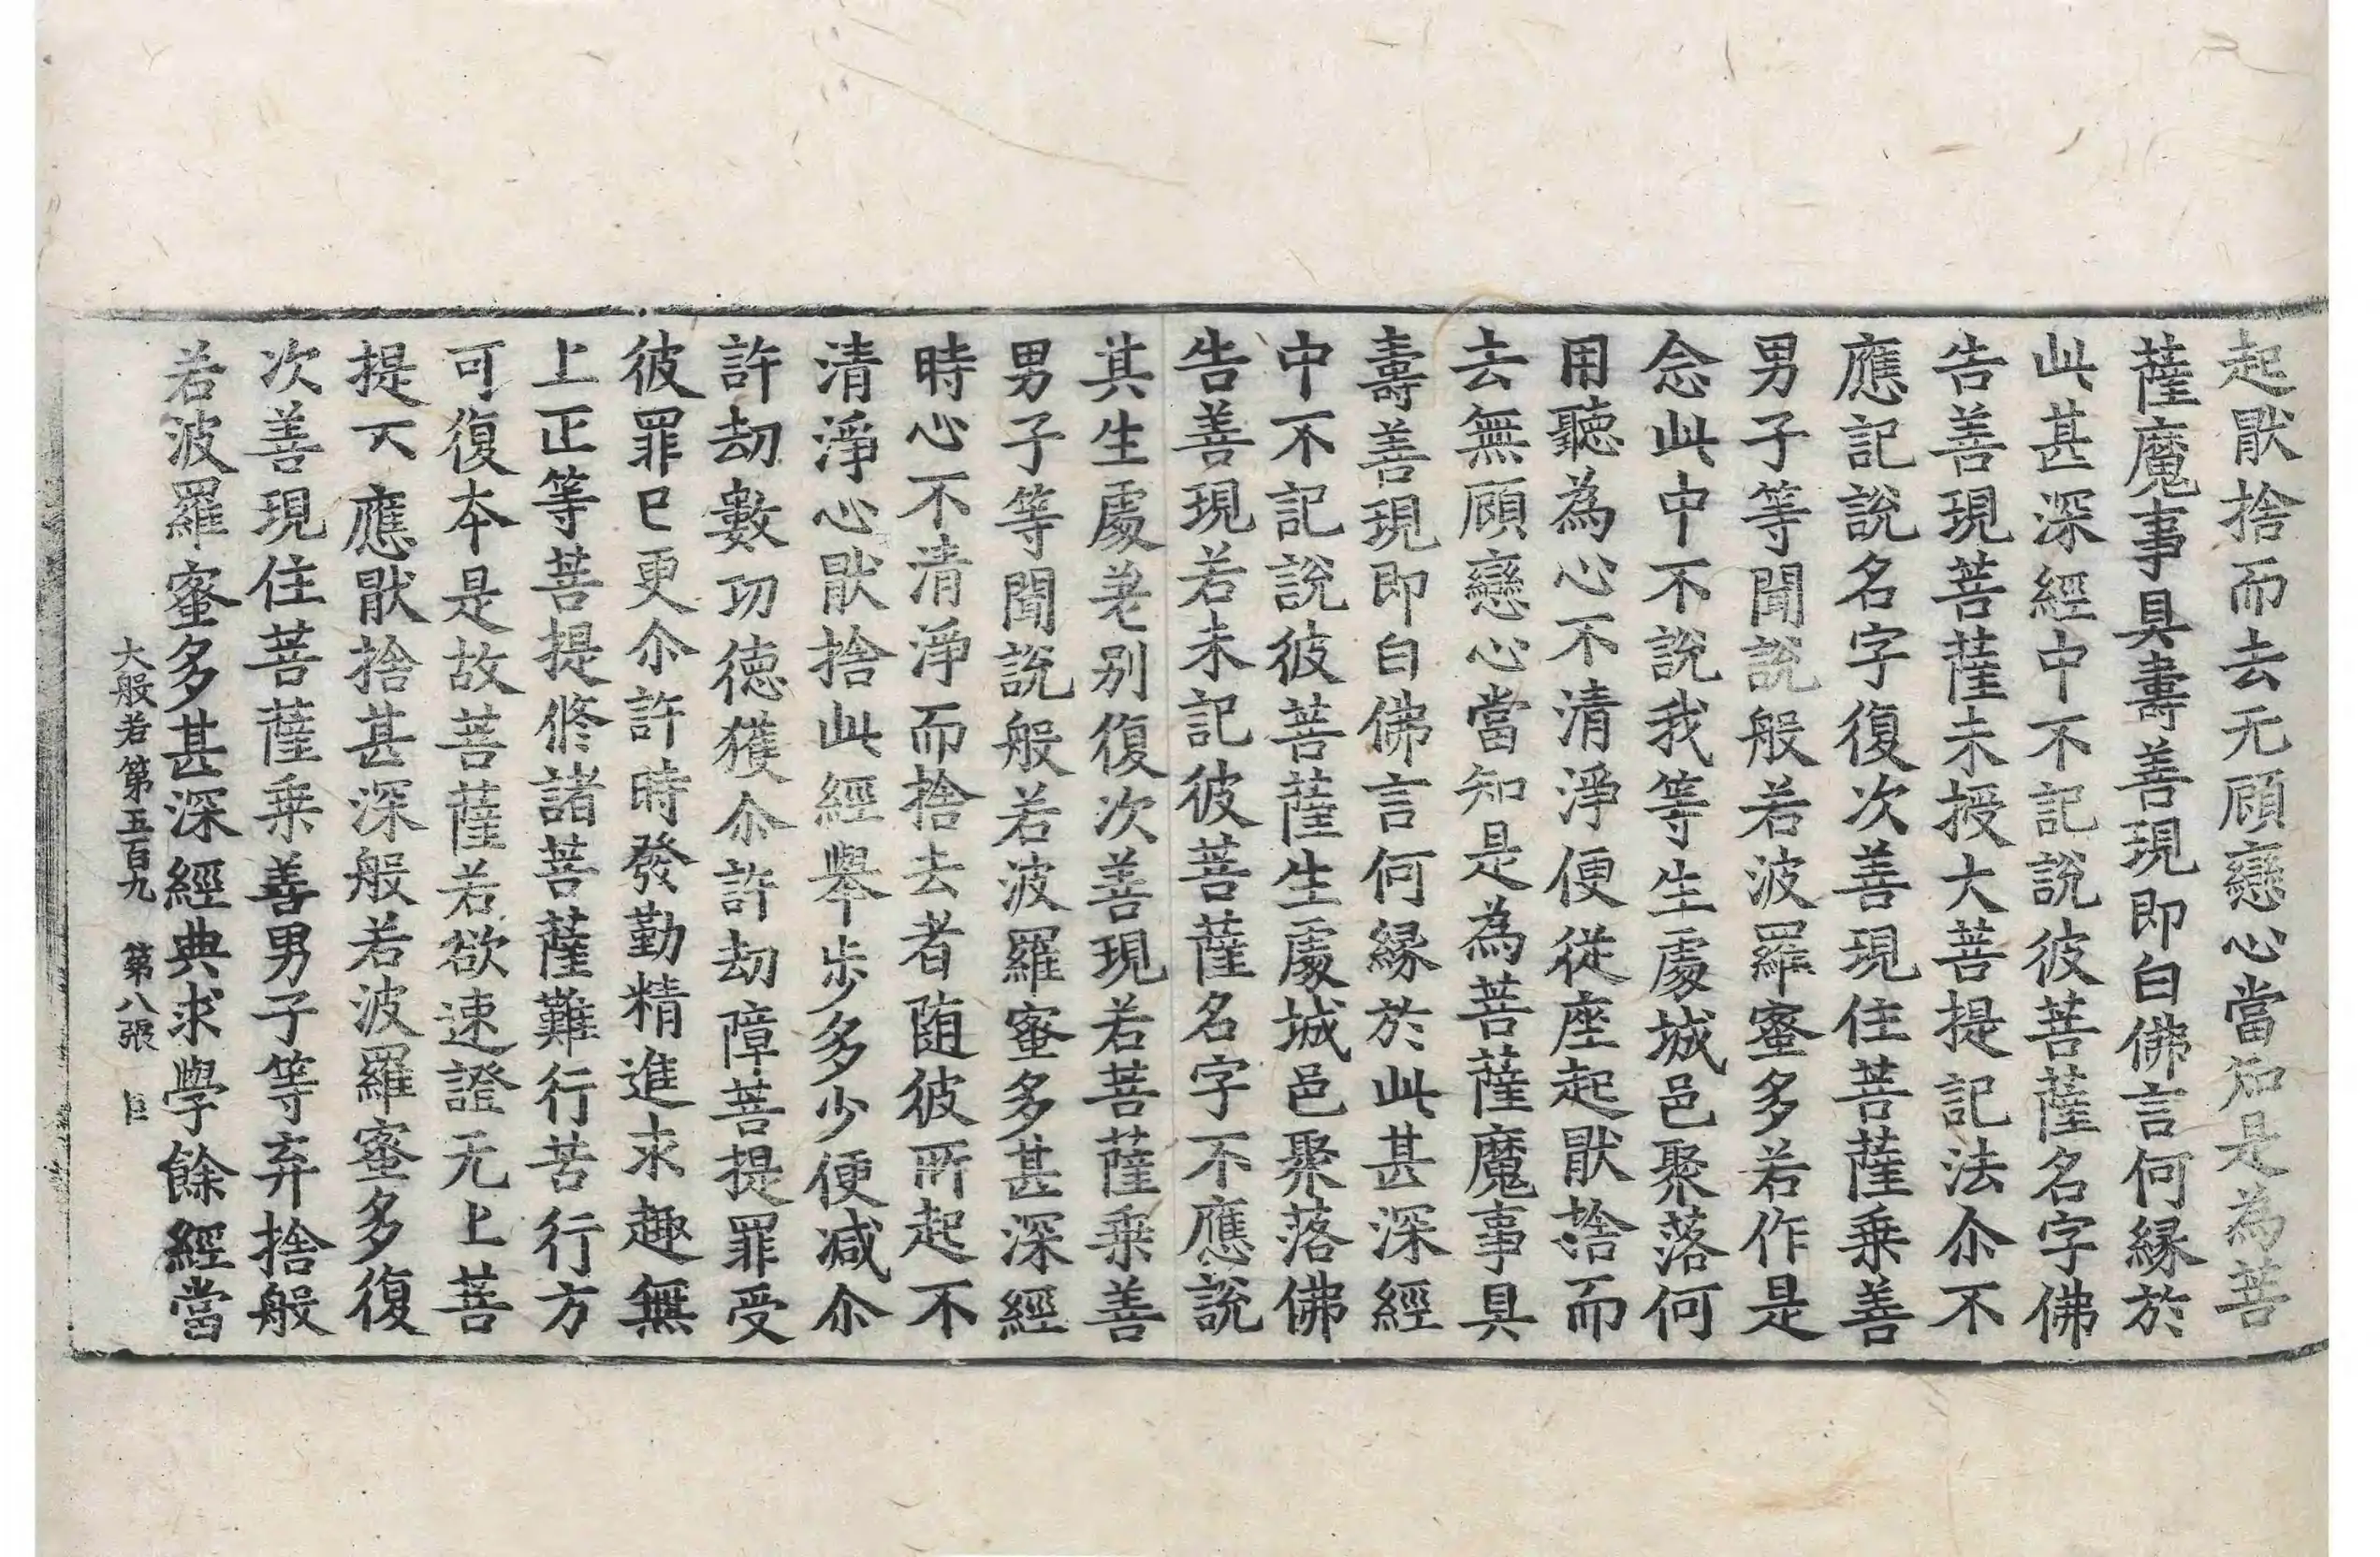 起猒捨而去无顧戀心當知是為菩
薩魔事具壽善現即白佛言何緣於
此甚深經中不記說彼菩薩名字佛
告善現菩薩未授大菩提記法尒不
應記說名字復次善現住菩薩乗善
男子等聞說般若波羅蜜多若作是
念此中不說我等生處城邑聚落何
用聽為心不清淨便從座起猒捨而
去無顧戀心當知是為菩薩魔事具
壽善現即白佛言何緣於此甚深經
中不記說彼菩薩生處城邑聚落佛
告善現若未記彼菩薩名字不應說
其生處差別復次善現若菩薩乗善
男子等聞說般若波羅蜜多甚深經
時心不清淨而捨去者随彼所起不
清淨心猒捨此經舉步多少便减尒
許劫數功德獲尒許劫障菩提罪受
彼罪已更尒許時發勤精進求趣無
上正等菩提修諸菩薩難行苦行方
可復本是故菩薩若欲速證无上菩
提不應猒捨甚深般若波羅蜜多復
次善現住菩薩乗善男子等弃捨般
若波羅蜜多甚深經典求學餘經當
大般若第五百九 第八張 臣